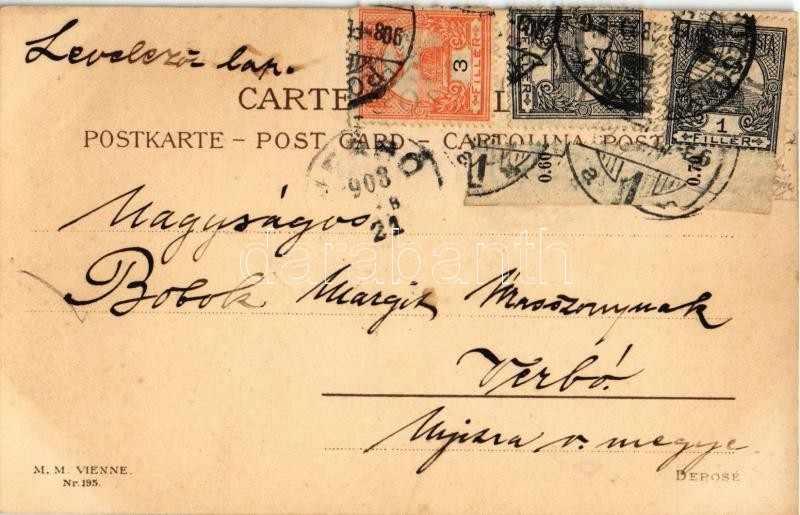 Levelező lap.
CARTE
POSTKARTE – POST CARD – CARTOLINA POST
3
FILLÉR
1
FILLÉR
908
0.60
0.70
21
Nagyságos
Bobok Margit Urasszonynak
Verbó.
Nyitra v. megye.
darabanth
M. M. VIENNE.
Nr. 195.
DEPOSÉ